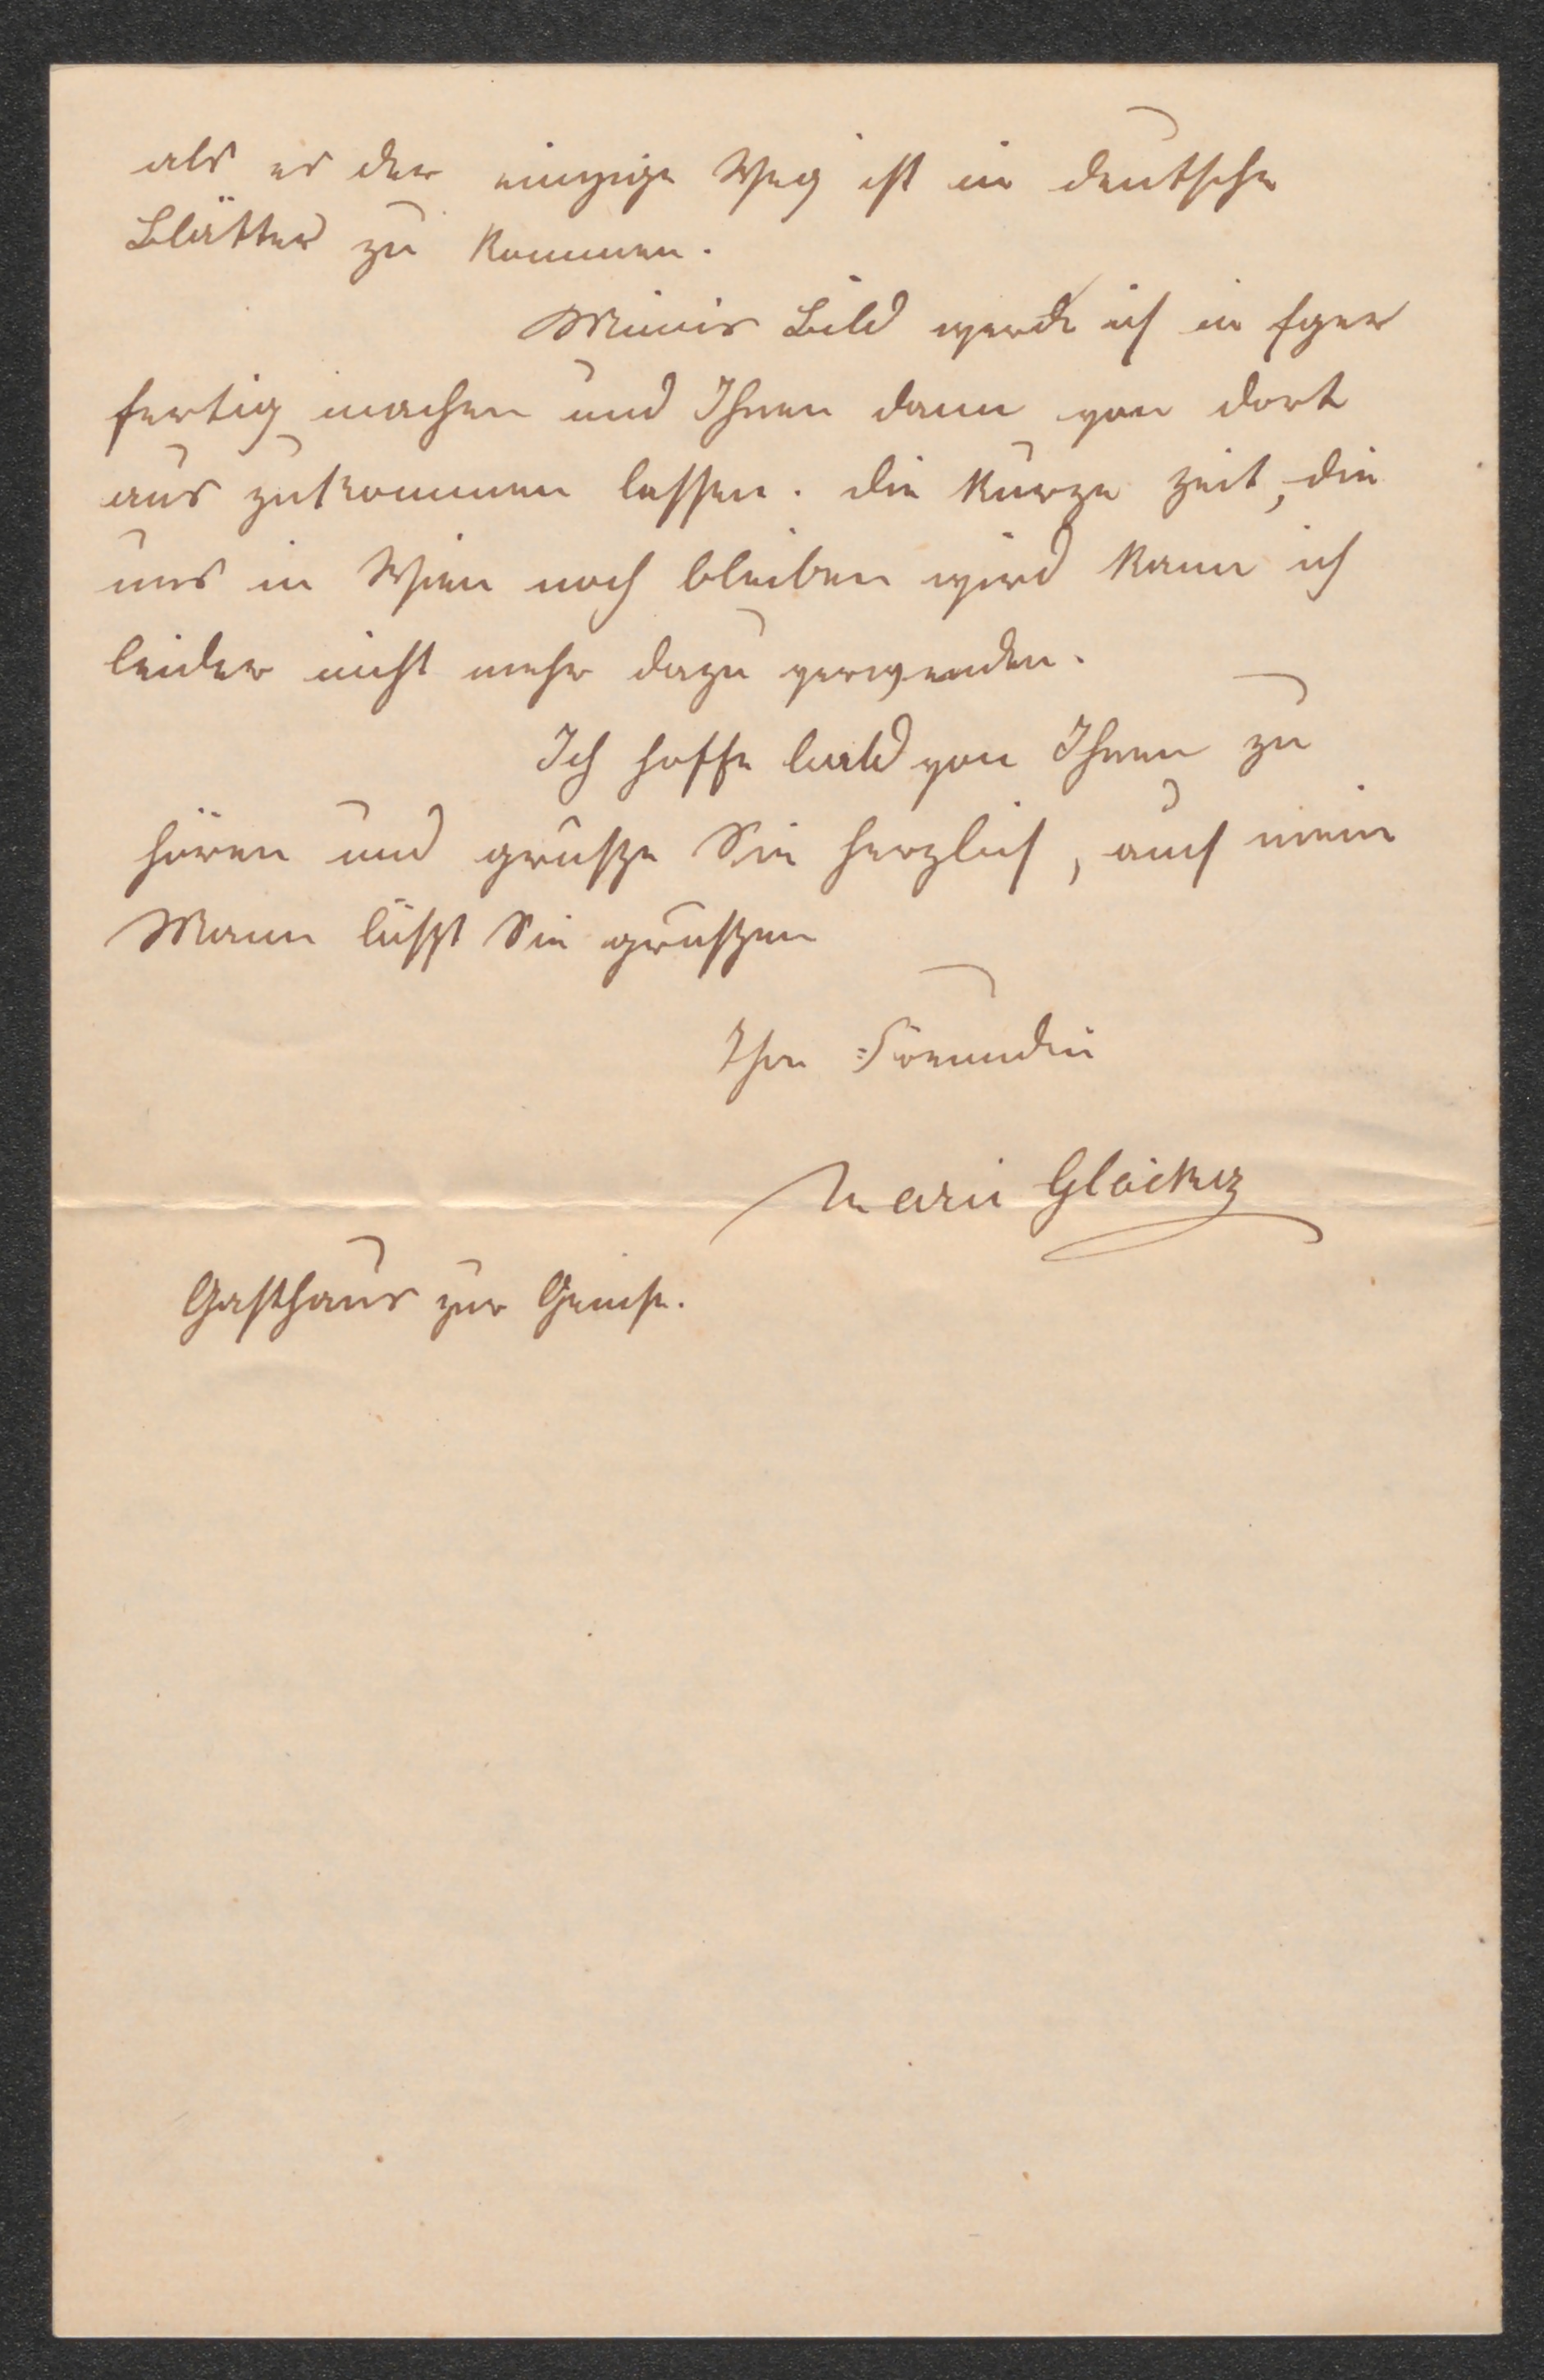 als es der einzige Weg ist in deutsche
Blätter zu kommen.
Mimis Bild werde ich in Eger
fertig machen und Ihnen dann von dort
aus zukommen lassen. Die kurze Zeit, die
uns in Wien noch bleiben wird kann ich
leider nicht mehr dazu verwenden.
Ich hoffe bald von Ihnen zu
hören und grüße Sie herzlich, auch mein
Mann läßt Sie grüßen
Ihre Freundin
Marie
Gasthaus zur Gemse.